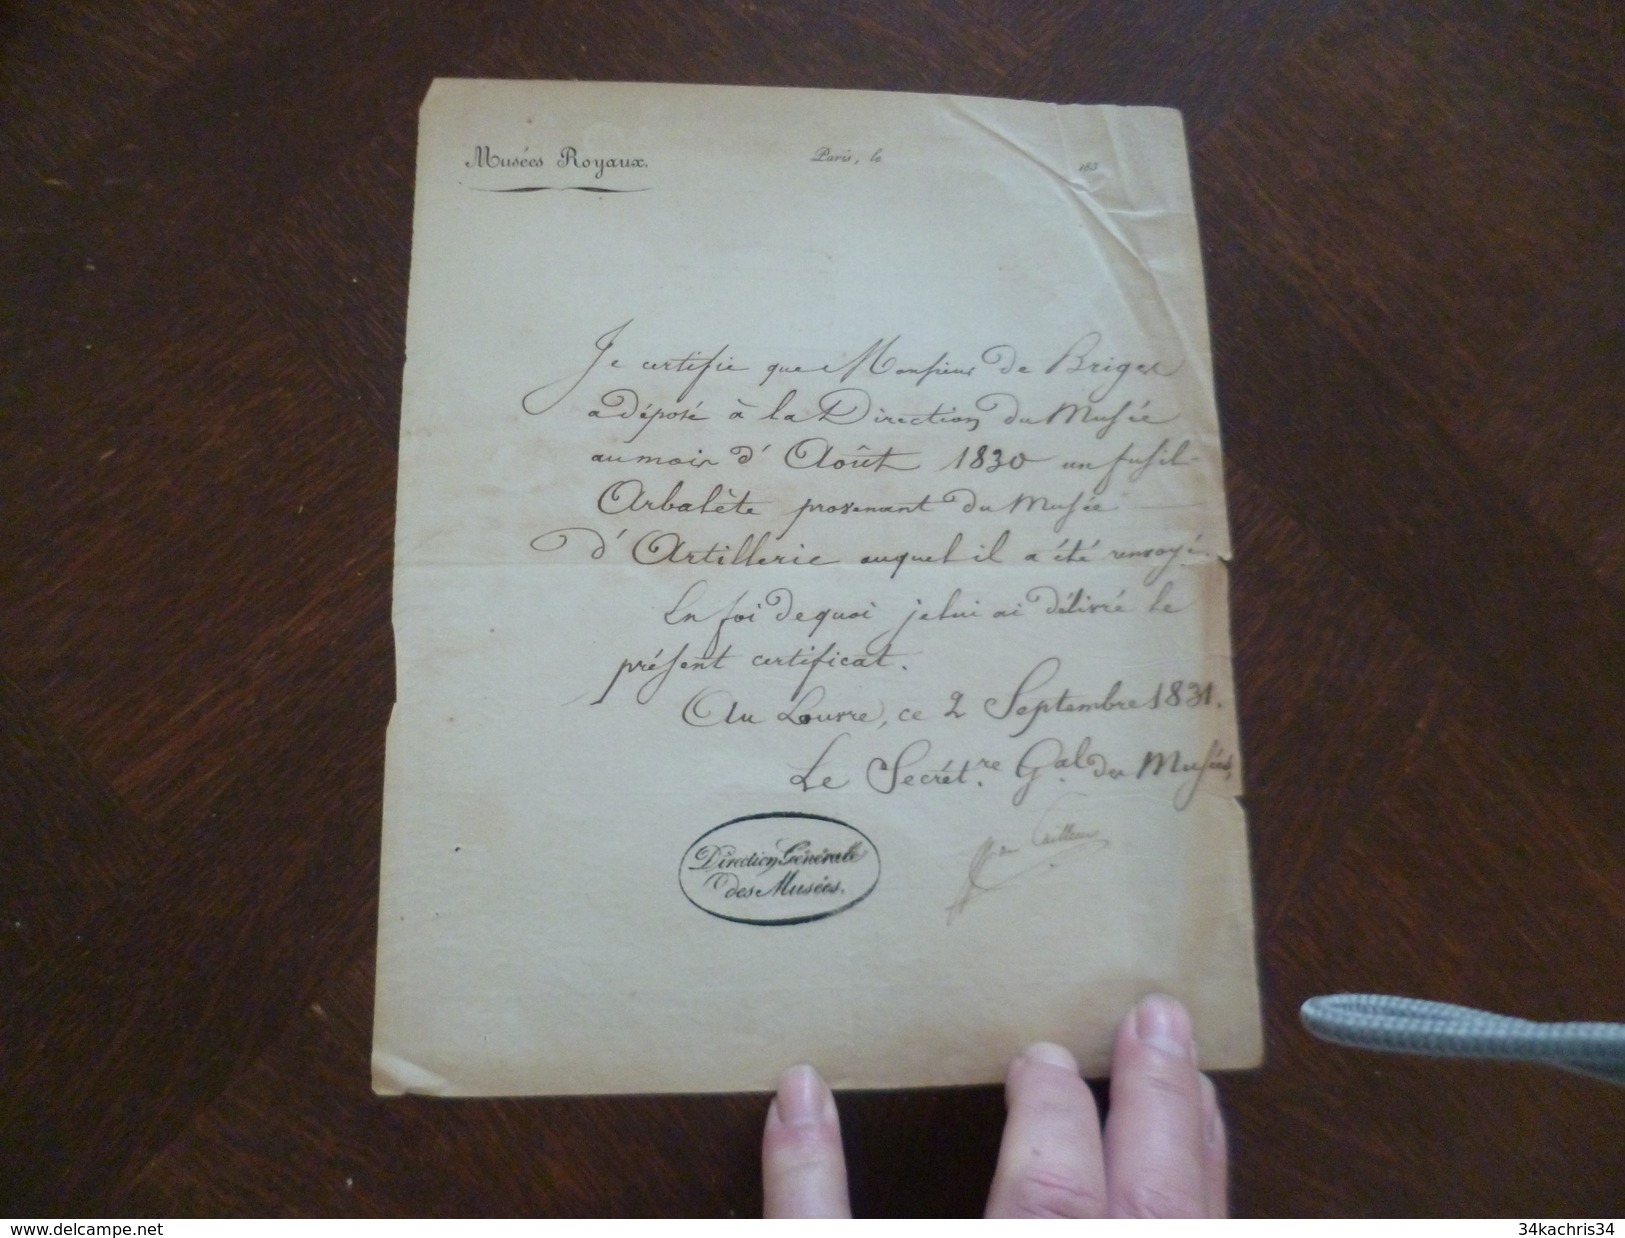 Musées Royaux.
Paris, le 183
Je certifie que Monsieur de Briges
a déposé à la Direction du Musée
au mois d'Août 1830 un fusil
Arbalète provenant du Musée
d'Artillerie auquel il a été renvoyé.
En foi de quoi je lui ai délivré le
présent certificat.
Au Louvre, ce 2 Septembre 1831.
Le Secrét.re G.al des Musées,
de Cailleux
Direction Générale
des Musées.
www.delcampe.net
34kachris34